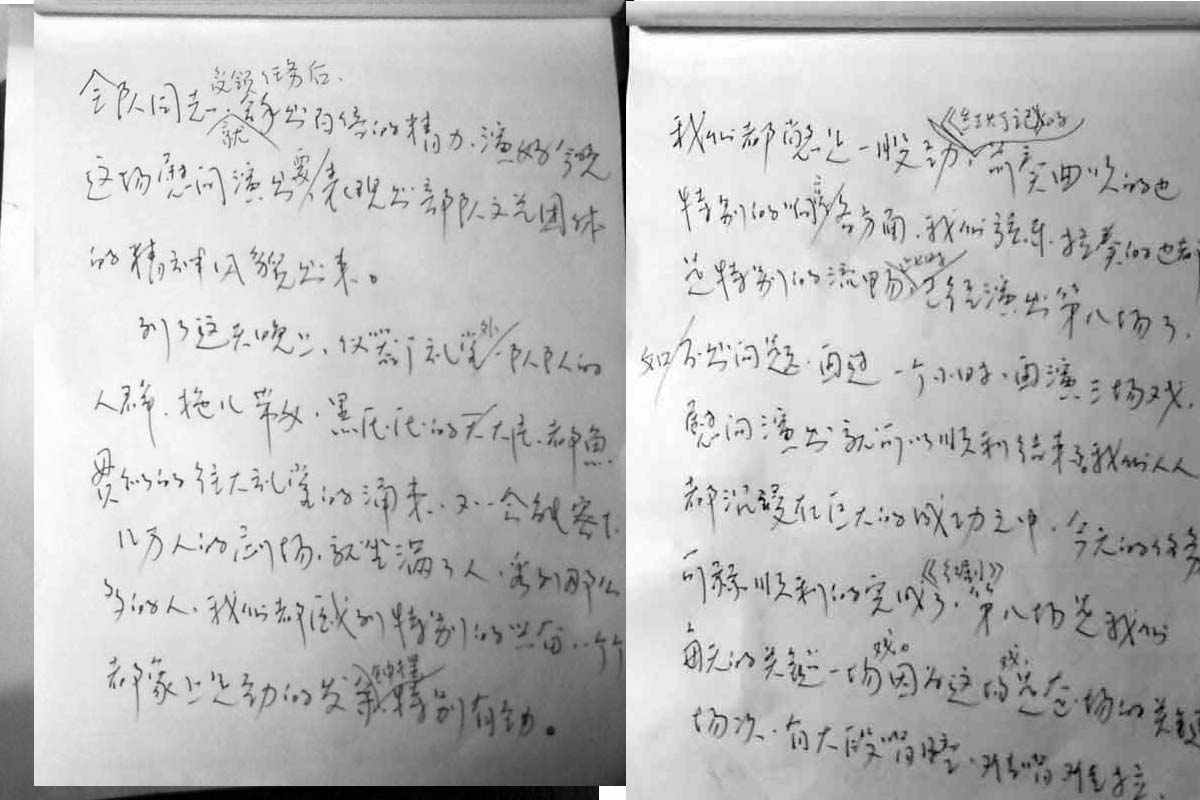 受领任务后、
全队同志、就拿出百倍的精力、演好今晚
这场慰问演出、要表现出部队文艺团体
的精神风貌出来。
到了这天晚上、仪器厂礼堂外、一队队的
人群、拖儿带女、黑压压的一大片、都鱼
贯似的往大礼堂的涌来、不一会就客下
几万人的剧场、就坐满了人、看到那么
多的人、我们都感到特别的兴奋、一个个
都象上足劲的发条钟样特别有劲。
我们都憋足一股劲、《红灯记》的前奏曲吹的也
特别的响亮各方面、我们弦乐、拉奏的也都
是特别的流畅、已经演出第八场了、
如不出问题、再过一个小时、再演三场戏、
慰问演出就可以顺利结束了我们人人
都沉浸在巨大的成功之中、今天的任务
可称顺利的完成了、第八场是我们
每天的关键一场戏。因为这场戏、是在一场的关键
场次、有大段唱腔、难唱难拉、